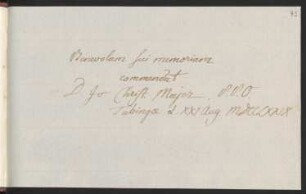 Benevolam sui memoriam
commendat
D Jo Christ. Majer. P.P.O
Tubingæ d XXI Aug MDCCLXXIX